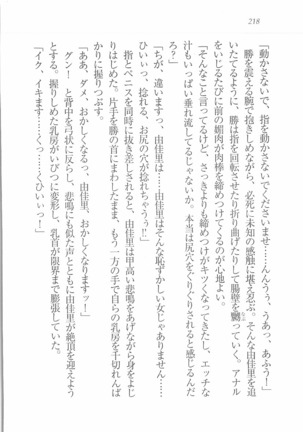 218
「動かさないで、指を動かさないでくださいませ……んんうぅ、うあっ、あふう！」
勝を震える腕で抱きしめながら、必死に未知の感触に堪え忍ぶ。そんな由佳里をい
いたてるように、勝は指を回転させたり折り曲げたりして腸壁を嬲っていく。アナル
をいじるたびに前の媚肉が肉棒を締めつけてくるのが心地よい。
「そんなこと言ってるけど、さっきよりも締めつけがキツくなってきたし、エッチな
汁もいっぱい垂れ流してるじゃないか。本当は尻穴をぐりぐりされると感じるんだ
ろ？」
「ちが、違います……由佳里は……由佳里はそんな恥ずかしい女じゃありません……
ひいいぃっ、捻れる、お尻の穴が捻れちゃううっ！」
指とペニスを同時に抜き差しされると、由佳里は甲高い悲鳴をあげながら身をよじ
りはじめた。片手を勝の首にまわしたまま、もう一方の手で自らの乳房を千切れんば
かりに握りつぶす。
「ああ、ダメ、おかしくなるっ、由佳里、おかしくなりますッー！」
グン！　と背中を弓状に反らし、悲鳴にも似た声とともに由佳里が絶頂を迎えよう
とする。握りしめた乳房がいびつに変形し、乳首が限界まで膨張していた。
「イク、イキます……くっ……くひいいっー！」